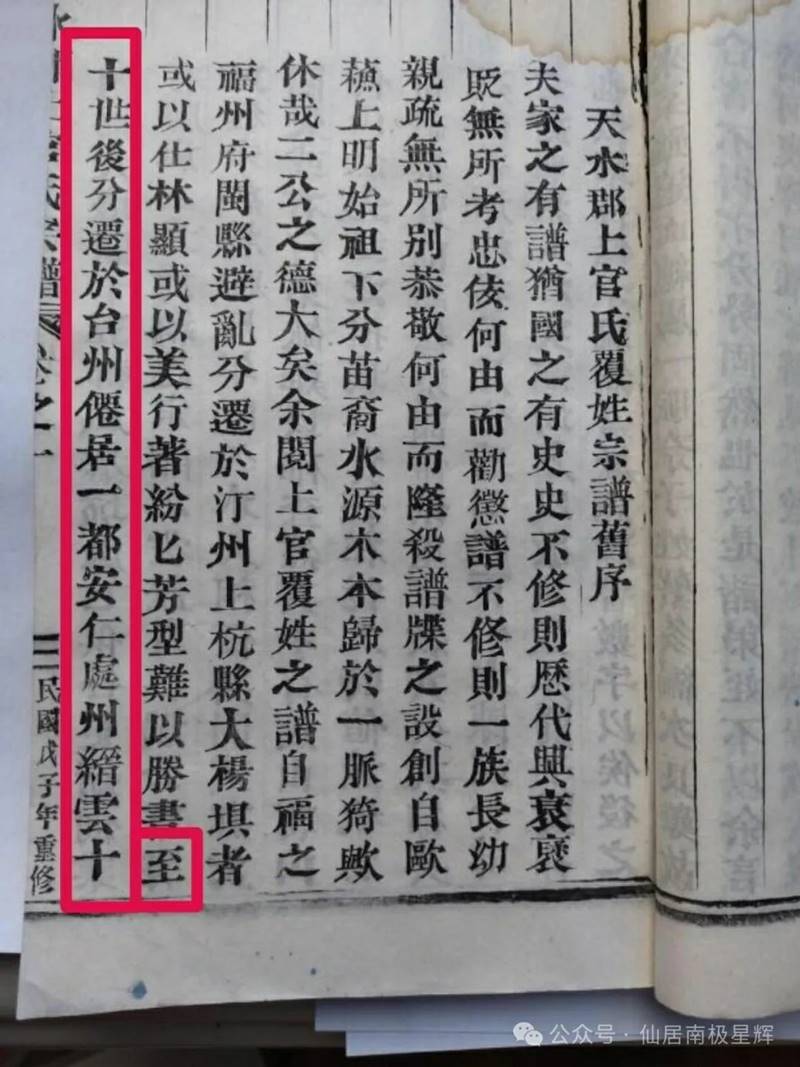 天水郡上官氏覆姓宗譜舊序
夫家之有譜猶國之有史史不修則歷代興衰褒
貶無所考忠佞何由而勸懲譜不修則一族長幼
親疏無所別恭敬何由而隆殺譜牒之設創自歐
蘓上明始祖下分苗裔水源木本歸於一脈猗歟
休哉二公之德大矣余閱上官覆姓之譜自福之
福州府閩縣避亂分遷於汀州上杭縣大楊垻者
或以仕林顯或以美行著紛匕芳型難以勝書至
十世後分遷於台州僊居一都安仁處州縉雲十
氏宗譜 卷之一
民國戊子年重修
公众号·仙居南极星辉